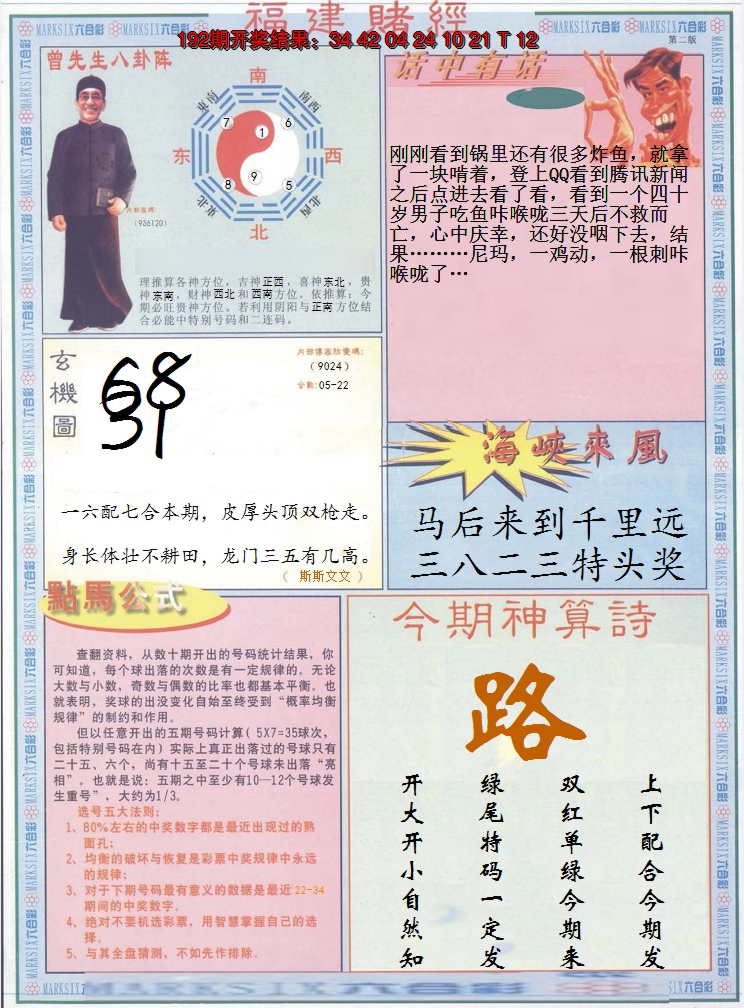 福建賭經
192期开奖结果：34 42 04 24 10 21 T 12
第二版
曾先生八卦阵
南
東南
南西
7
1
6
东
西
8
9
5
東北
北西
北
內部密碼:
(936120)
理推算各神方位，吉神正西，喜神东北，贵
神东南，财神西北和西南方位。依推算：今
期必旺贵神方位。若利用阴阳与正南方位结
合必能中特别号码和二连码。
话中有话
刚刚看到锅里还有很多炸鱼，就拿
了一块啃着，登上QQ看到腾讯新闻
之后点进去看了看，看到一个四十
岁男子吃鱼咔喉咙三天后不救而
亡，心中庆幸，还好没咽下去，结
果………尼玛，一鸡动，一根刺咔
喉咙了…
玄機圖
內部傳密防變碼:
(9024)
合數:05-22
一六配七合本期，皮厚头顶双枪走。
身长体壮不耕田，龙门三五有几高。
（ 斯斯文文 ）
海峽來風
马后来到千里远
三八二三特头奖
點馬公式
查翻资料，从数十期开出的号码统计结果，你
可知道，每个球出落的次数是有一定规律的。无论
大数与小数，奇数与偶数的比率也都基本平衡。也
就表明，奖球的出没变化自始至终受到“概率均衡
规律”的制约和作用。
但以任意开出的五期号码计算( 5X7=35球次，
包括特别号码在内) 实际上真正出落过的号球只有
二十五、六个，尚有十五至二十个号球未出落“亮
相”。也就是说：五期之中至少有10—12个号球发
生重号”，大约为1/3。
选号五大法则:
1、80%左右的中奖数字都是最近出现过的熟
面孔；
2、均衡的破坏与恢复是彩票中奖规律中永远
的规律；
3、对于下期号码最有意义的数据是最近22-34
期间的中奖数字。
4、绝对不要机选彩票，用智慧掌握自己的选
择。
5、与其全盘猜测，不如先作排除。
今期神算詩
路
上下配合今期发
双红单绿今期来
绿尾特码一定发
开大开小自然知
MARKSIX六合彩